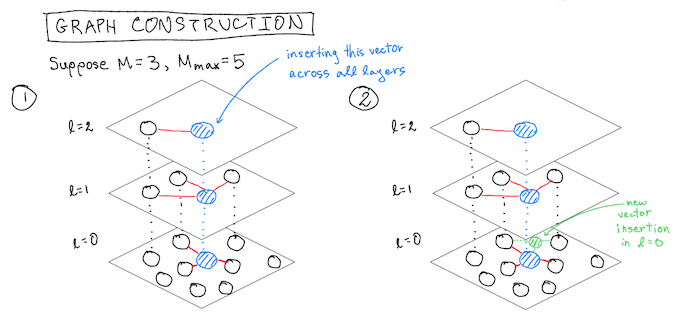 GRAPH CONSTRUCTION
Suppose M=3, Mmax=5
inserting this vector
across all layers
1
l=2
l=1
l=0
2
l=2
l=1
l=0
new
vector
insertion
in l=0